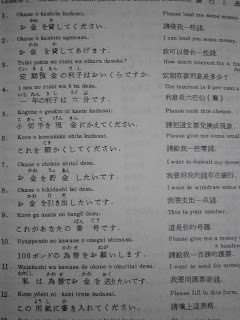 1. Okane o kashite kudasai. Please lend me some money.
お金を貸してください。 請借我一些錢。
2. Okane o kashite agemasu. I can lend you some money.
お金を貸してあげます。 我可以借你一些錢。
3. Teiki yokin no rishi wa ikura desu ka. How much interest for a
定期預金の利子はおいくらですか。 定期存款利息是多少?
4. 1 nen no rishi wa 6 bu desu. The interest is 6 per cent a
一年の利子は六分です。 利息是六巴仙
5. Kogitte o genkin ni kaete kudasai. Please cash this cheque.
小切手を現金にかえてください。 請把這支票兌換成現款。
6. Kore o komakaku shite kudasai. Please give me some small
これを細かくしてください。 請給我一些零錢。
7. Okane o chokin shitai desu. I want to deposit my money
お金を貯金したいです。 我要將我的錢存在銀行。
8. Okane o hikidashi tai desu. I want to withdraw some
お金を引出したいです。 我要支出一點錢。
9. Kore ga anata no bangō desu. This is your number.
これがあなたの番号です。 這是你的号碼。
10. Hyappondo no kawase o onegai shimasu. Please give me a money
100ポンドの為替をお願いします。 請給我一百鎊的匯票。
11. Watakushi wa kawase de okane o okuritai desu. I want to send the money
私は為替でお金を送りたいです。 我要用匯票
12. Kono yōshi ni kaki irete kudasai. Please fill in this form.
この用紙に書き入れてください。 請填上這表格。